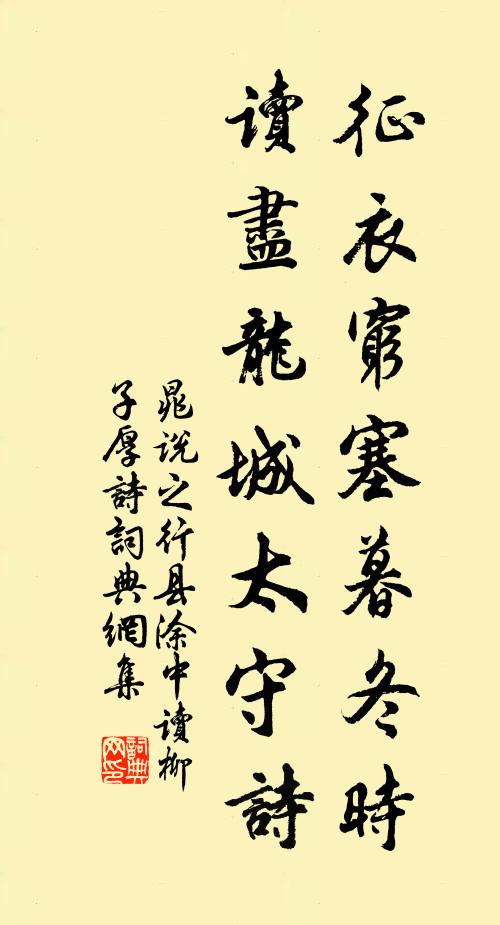 征衣窮塞暮冬時
讀盡龍城太守詩
晁说之行县涂中讀柳
子厚詩詞典網集
詞典
网印